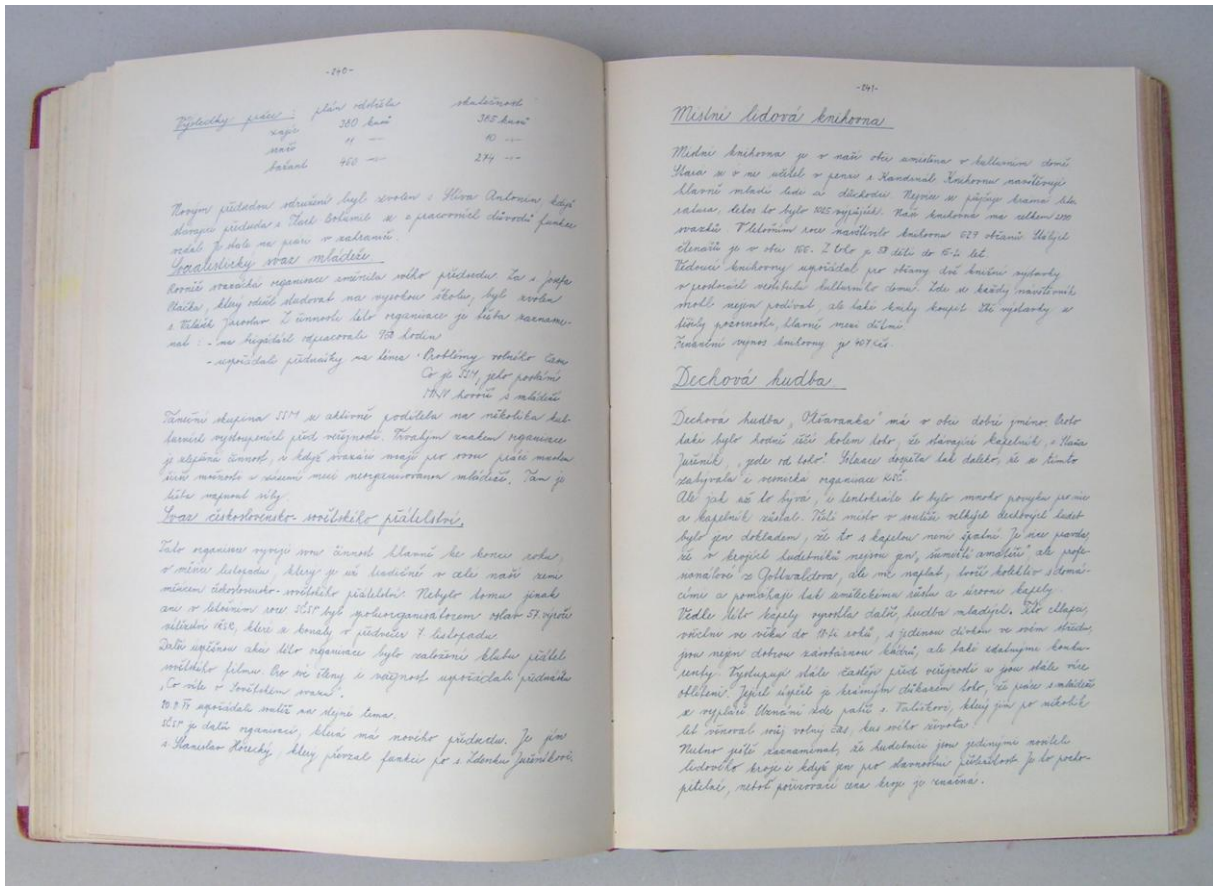 -240-
Výsledky práce : plán odstřelu skutečnost
zajíc 380 kusů 385 kusů
srnčí 11 -"- 10 -"-
bažant 460 -"- 274 -"-
Novým předsedou sdružení byl zvolen s. Slíva Antonín, když
stávající předseda s. Bohumil se z pracovních důvodů funkce
vzdal. Je stále na práci v zahraničí.
Socialistický svaz mládeže
Rovněž svazácká organizace změnila svého předsedu. Za s. Josefa
který odešel studovat na vysokou školu, byl zvolen
s. Jaroslav. Z činnosti této organizace je třeba zazname-
nat : - na brigádách odpracovali hodin
- uspořádali přednášky na téma : Problémy volného času
Co je SSM, jeho poslání
MNV hovoří s mládeží
Taneční skupina SSM se aktivně podílela na několika kul-
turních vystoupeních před veřejností. Trvalým znakem organizace
je zlepšená činnost, i když svazáci mají pro svou práci mnoho
možností v získání mezi neorganizovanou mládeží. Tam je
třeba napnout síly.
Svaz československo-sovětského přátelství.
Tato organizace vyvíjí svou činnost hlavně ke konci roku,
v měsíci listopadu, který je už tradičně v celé naší zemi
měsícem československo-sovětského přátelství. Nebylo tomu jinak
ani v letošním roce. SČSP byl spoluorganizátorem oslav 57. výročí
vítězství VŘSR, které se konaly v předvečer 7. listopadu.
Další úspěšnou akcí této organizace bylo založení klubu přátel
sovětského filmu. Pro své členy i veřejnost uspořádali přednášku
„Co víte o Sovětském svazu".
uspořádali soutěž na stejné téma.
SČSP je další organizací, která má nového předsedu. Je jím
s. Stanislav Horecký, který převzal funkci po s. Zdenku Juřeníkovi.
-241-
Místní lidová knihovna
Místní knihovna je v naší obci umístěna v kulturním domě.
Stará se o ni učitel v penzi s. Kandrnál. Knihovnu navštěvují
hlavně mladí lidé a důchodci. Nejvíce se půjčuje krásná lite-
ratura, letos to bylo 1025 výpůjček. Naše knihovna má celkem
svazků. V letošním roce navštívilo knihovnu 629 občanů. Stálých
čtenářů je v obci 166. Z toho je dětí do 15-ti let.
Vedoucí knihovny uspořádal pro občany dvě knižní výstavky
v prostorách vestibulu kulturního domu. Zde se každý návštěvník
mohl nejen podívat, ale také knihy koupit. Obě výstavky se
těšily pozornosti, hlavně mezi dětmi.
Finanční výnos knihovny je 407 Kčs.
Dechová hudba
Dechová hudba „Vážanka" má v obci dobré jméno. Proto
také bylo hodně řečí kolem toho, že stávající kapelník, s. Sláva
Juřeník, „jede od toho". Situace dospěla tak daleko, že se tímto
zabývala i vesnická organizace KSČ.
Ale jak už to bývá, i tentokráte to bylo mnoho povyku pro nic
a kapelník zůstal. Třetí místo v soutěži velkých dechových hudeb
bylo jen dokladem, že to s kapelou není špatné. Je sice pravda,
že v krojích hudebníků nejsou jen „túmišti amatéři" ale profe-
sionálové z Gottwaldova, ale nic naplat, tvoří kolektiv s domá-
cími a pomáhají tak uměleckému růstu a úrovni kapely.
Vedle této kapely vyrostla další, hudba mladých. Tito chlapci,
všichni ve věku do 18-ti roků, s jedinou dívkou ve svém středu,
jsou nejen dobrou zásobárnou kádrů, ale také zdatnými konku-
renty. Vystupují stále častěji před veřejností a jsou stále více
oblíbení. Jejich úspěch je krásným důkazem toho, že práce s mládeží
se vyplácí. Uznání zde patří s. Valáškovi, který jim po několik
let věnoval svůj volný čas, kus svého života.
Nutno ještě zaznamenat, že hudebníci jsou jedinými nositeli
lidového kroje i když jen pro slavnostní příležitosti. Je to pocho-
pitelné, neboť pořizovací cena kroje je značná.